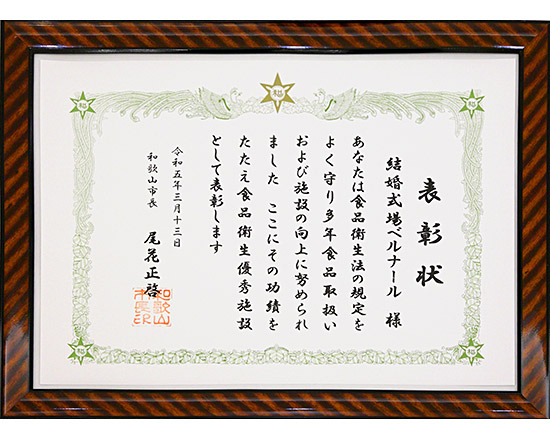 表彰状
結婚式場ベルナール 様
あなたは食品衛生法の規定を
よく守り多年食品取扱い
および施設の向上に努められ
ました ここにその功績を
たたえ食品衛生優秀施設
として表彰します
令和五年三月十三日
和歌山市長 尾花正啓
和歌山
市長印